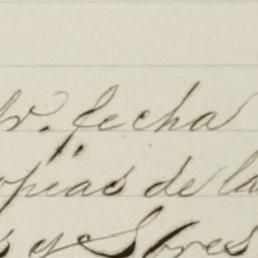 fecha
opias de la
s y Sres